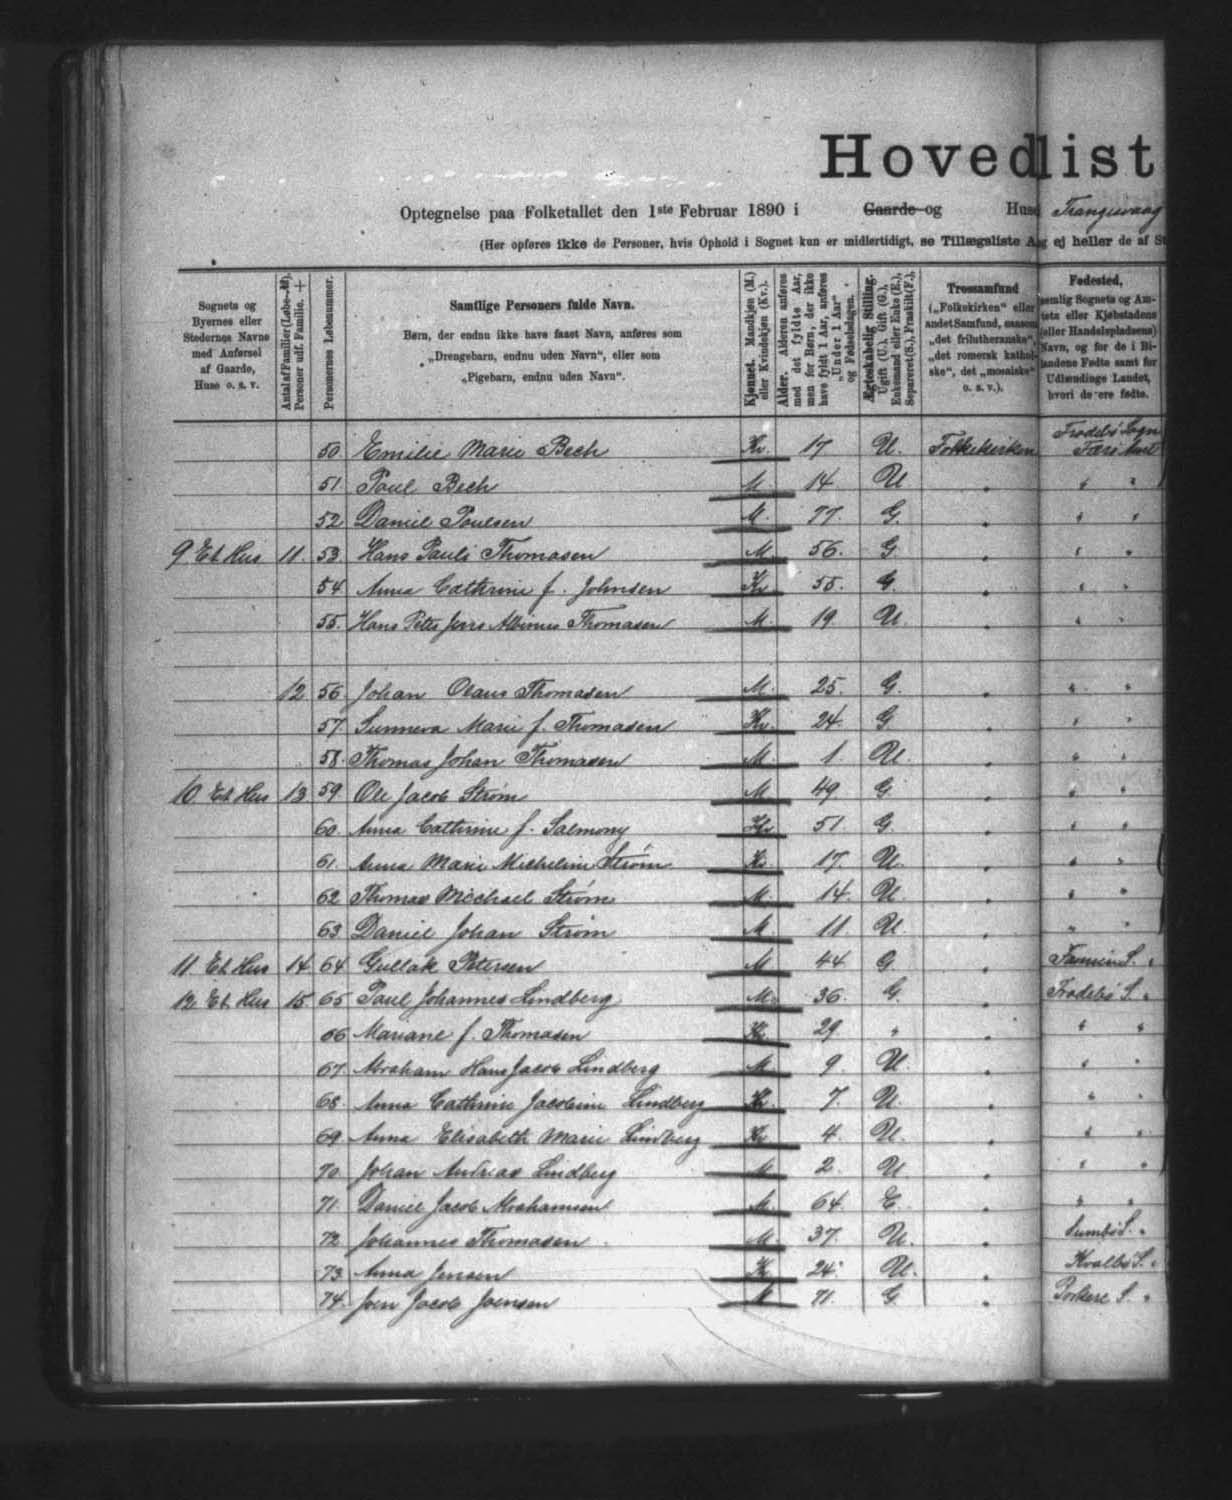 Hovedlist
Optegnelse paa Folketallet den 1ste Februar 1890 i Gaarde og Huse Trangisvaag
(Her opføres ikke de Personer, hvis Ophold i Sognet kun er midlertidigt, se Tillægsliste A, og ej heller de af St
Sognets og Byernes eller Stedernes Navne med Anførsel af Gaarde, Huse o. s. v.
Antal af Familier (Løbe-№). Personer udf. Familie. +
Personernes Løbenummer.
Samtlige Personers fulde Navn.
Børn, der endnu ikke have faaet Navn, anføres som
„Drengebarn, endnu uden Navn“, eller som
„Pigebarn, endnu uden Navn“.
Kjønnet. Mandkjøn (M.) eller Kvindekjøn (Kv.).
Alder. Alderen anføres med det fyldte Aar, men for Børn, der ikke have fyldt 1 Aar, anføres „Under 1 Aar“ og Fødselsdagen.
Ægteskabelig Stilling. Ugift (U.), Gift (G.), Enkemand eller Enke (E.), Separeret (S.), Fraskilt (F.).
Trossamfund
(„Folkekirken“ eller andet Samfund, saasom „det frilutheranske“, „det romersk katholske“, det „mosaiske“ o. s. v.).
Fødested,
nemlig Sognets og Amtets eller Kjøbstadens (eller Handelspladsens) Navn, og for de i Bilandene Fødte samt for Udlændinge Landet, hvori de ere fødte.
50. Emilie Marie Bech Kv. 17 U. Folkekirken Frodebø Sogn Færø Amt
51. Poul Bech M. 14. U " "
52. Daniel Poulsen M. 77. G. " "
9 Et Hus 11. 53. Hans Pauli Thomasen M. 56. G. " "
54. Anna Cathrine f. Johnsen Kv 55. G. " "
55. Hans Peter Jens Albinus Thomasen M. 19. U. " "
12 56. Johan Olaus Thomasen M. 25. G. " "
57. Sunneva Marie f. Thomasen Kv. 24. G " "
58. Thomas Johan Thomasen M. 1. U. " "
10 Et Hus 13 59 Ole Jacob Strøm M 49 G " "
60. Anna Cathrine f. Salmony Kv 51. G. " "
61. Anna Marie Micheline Strøm Kv. 17. U. " "
62 Thomas Michael Strøm M. 14. U. " "
63 Daniel Johan Strøm M. 11 U. " "
11 Et Hus 14. 64 Gullak Petersen M 44 G. Famien S. "
12 Et. Hus 15. 65 Poul Johannes Lindberg M. 36. G. Frodebø S. "
66 Mariane f. Thomasen Kv. 29 " " "
67. Abraham Hans Jacob Lindberg M. 9. U. " "
68. Anna Cathrine Jacobine Lindberg Kv 7. U. " "
69 Anna Elisabeth Marie Lindberg Kv 4. U. " "
70. Johan Andreas Lindberg M 2. U " "
71. Daniel Jacob Abrahamsen M. 64. E. " "
72. Johannes Thomasen M 37. U. Sumbø S. "
73 Anna Jensen Kv 24 U. Kvalbø S. "
74. Joen Jacob Joensen M 71. G. Porkere S. "